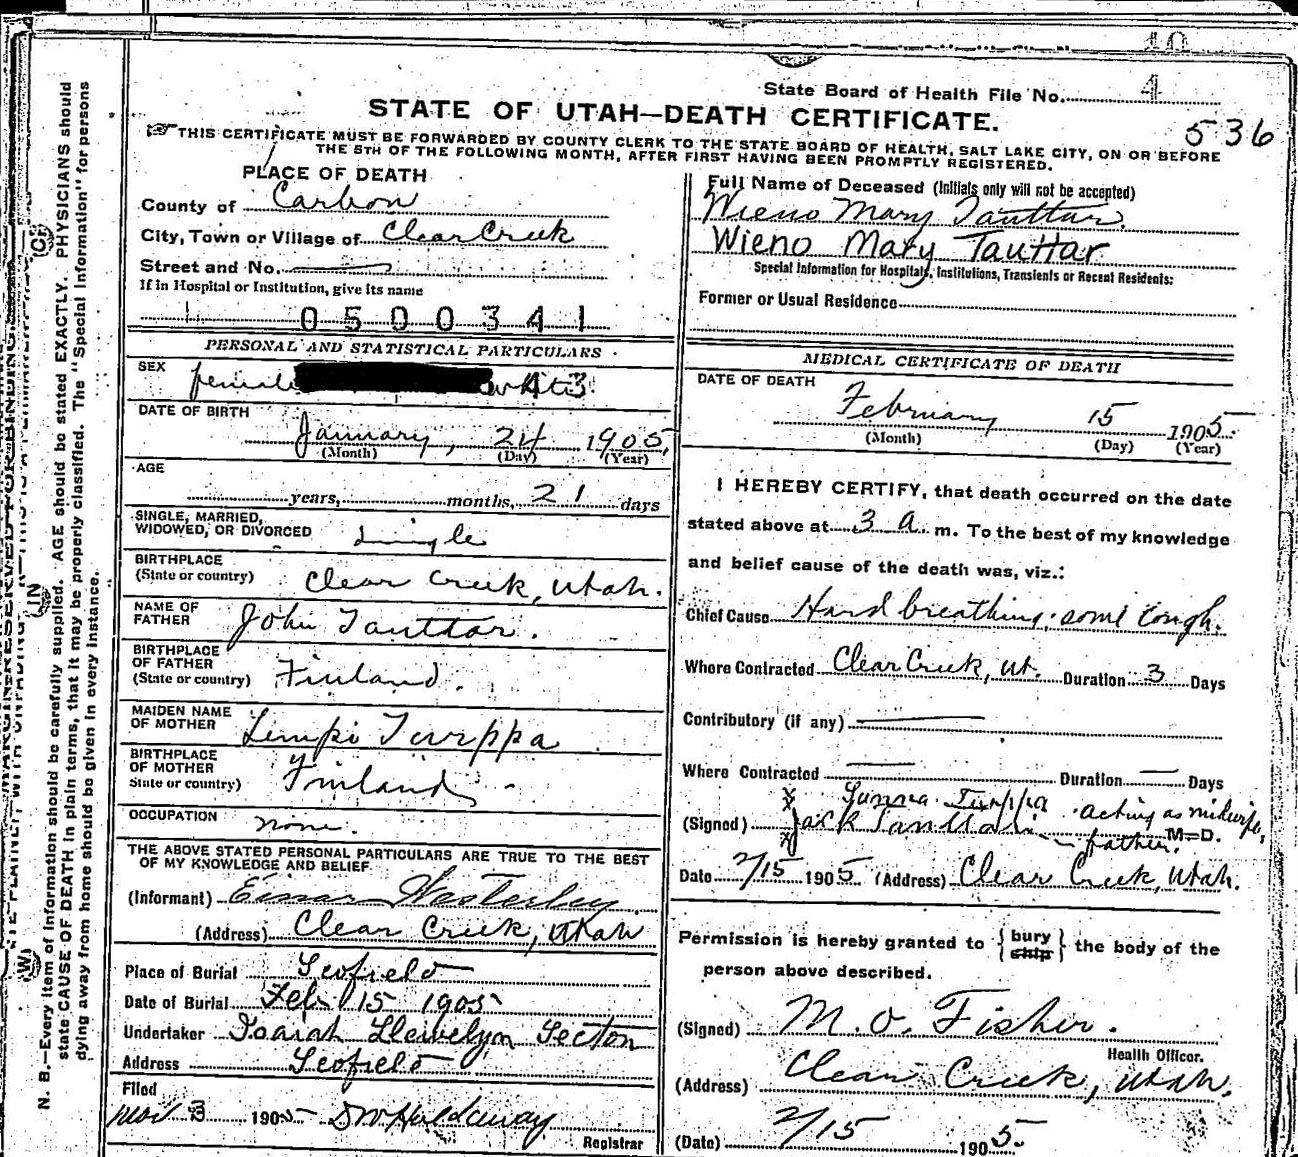 10
State Board of Health File No. 4
STATE OF UTAH—DEATH CERTIFICATE.
536
THIS CERTIFICATE MUST BE FORWARDED BY COUNTY CLERK TO THE STATE BOARD OF HEALTH, SALT LAKE CITY, ON OR BEFORE
THE 5TH OF THE FOLLOWING MONTH, AFTER FIRST HAVING BEEN PROMPTLY REGISTERED.
PLACE OF DEATH
County of Carbon
City, Town or Village of Clear Creek
Street and No.
If in Hospital or Institution, give its name
0500341
PERSONAL AND STATISTICAL PARTICULARS
SEX female white 43
DATE OF BIRTH
January, 24 1905,
(Month) (Day) (Year)
AGE
years, months, 21 days
SINGLE, MARRIED,
WIDOWED, OR DIVORCED single
BIRTHPLACE
(State or country) Clear Creek, Utah.
NAME OF
FATHER John Tauttar.
BIRTHPLACE
OF FATHER
(State or country) Finland.
MAIDEN NAME
OF MOTHER Limpi Turppa
BIRTHPLACE
OF MOTHER
State or country) Finland
OCCUPATION none.
THE ABOVE STATED PERSONAL PARTICULARS ARE TRUE TO THE BEST
OF MY KNOWLEDGE AND BELIEF
(Informant) Einar Westerley
(Address) Clear Creek, Utah
Place of Burial Scofield
Date of Burial Feb 15 1905
Undertaker Isaiah Llewelyn Secton
Address Scofield
Filed
3 1905 Registrar
Full Name of Deceased (Initials only will not be accepted)
Wieno Mary Tauttar.
Wieno Mary Tauttar
Special Information for Hospitals, Institutions, Transients or Recent Residents:
Former or Usual Residence
MEDICAL CERTIFICATE OF DEATH
DATE OF DEATH
February 15 1905
(Month) (Day) (Year)
I HEREBY CERTIFY, that death occurred on the date
stated above at 3 a. m. To the best of my knowledge
and belief cause of the death was, viz.:
Chief Cause Hard breathing, some cough.
Where Contracted Clear Creek, Ut. Duration 3 Days
Contributory (if any)
Where Contracted Duration Days
Turppa acting as midwife,
(Signed) Jack father. M.D.
Date 2/15 1905 (Address) Clear Creek, Utah.
Permission is hereby granted to {bury ship} the body of the
person above described.
(Signed) M. O. Fisher.
Health Officer.
(Address) Clear Creek, Utah,
(Date) 2/15 1905
N. B.—Every item of information should be carefully supplied. AGE should be stated EXACTLY. PHYSICIANS should
state CAUSE OF DEATH in plain terms, that it may be properly classified. The "Special Information" for persons
dying away from home should be given in every instance.